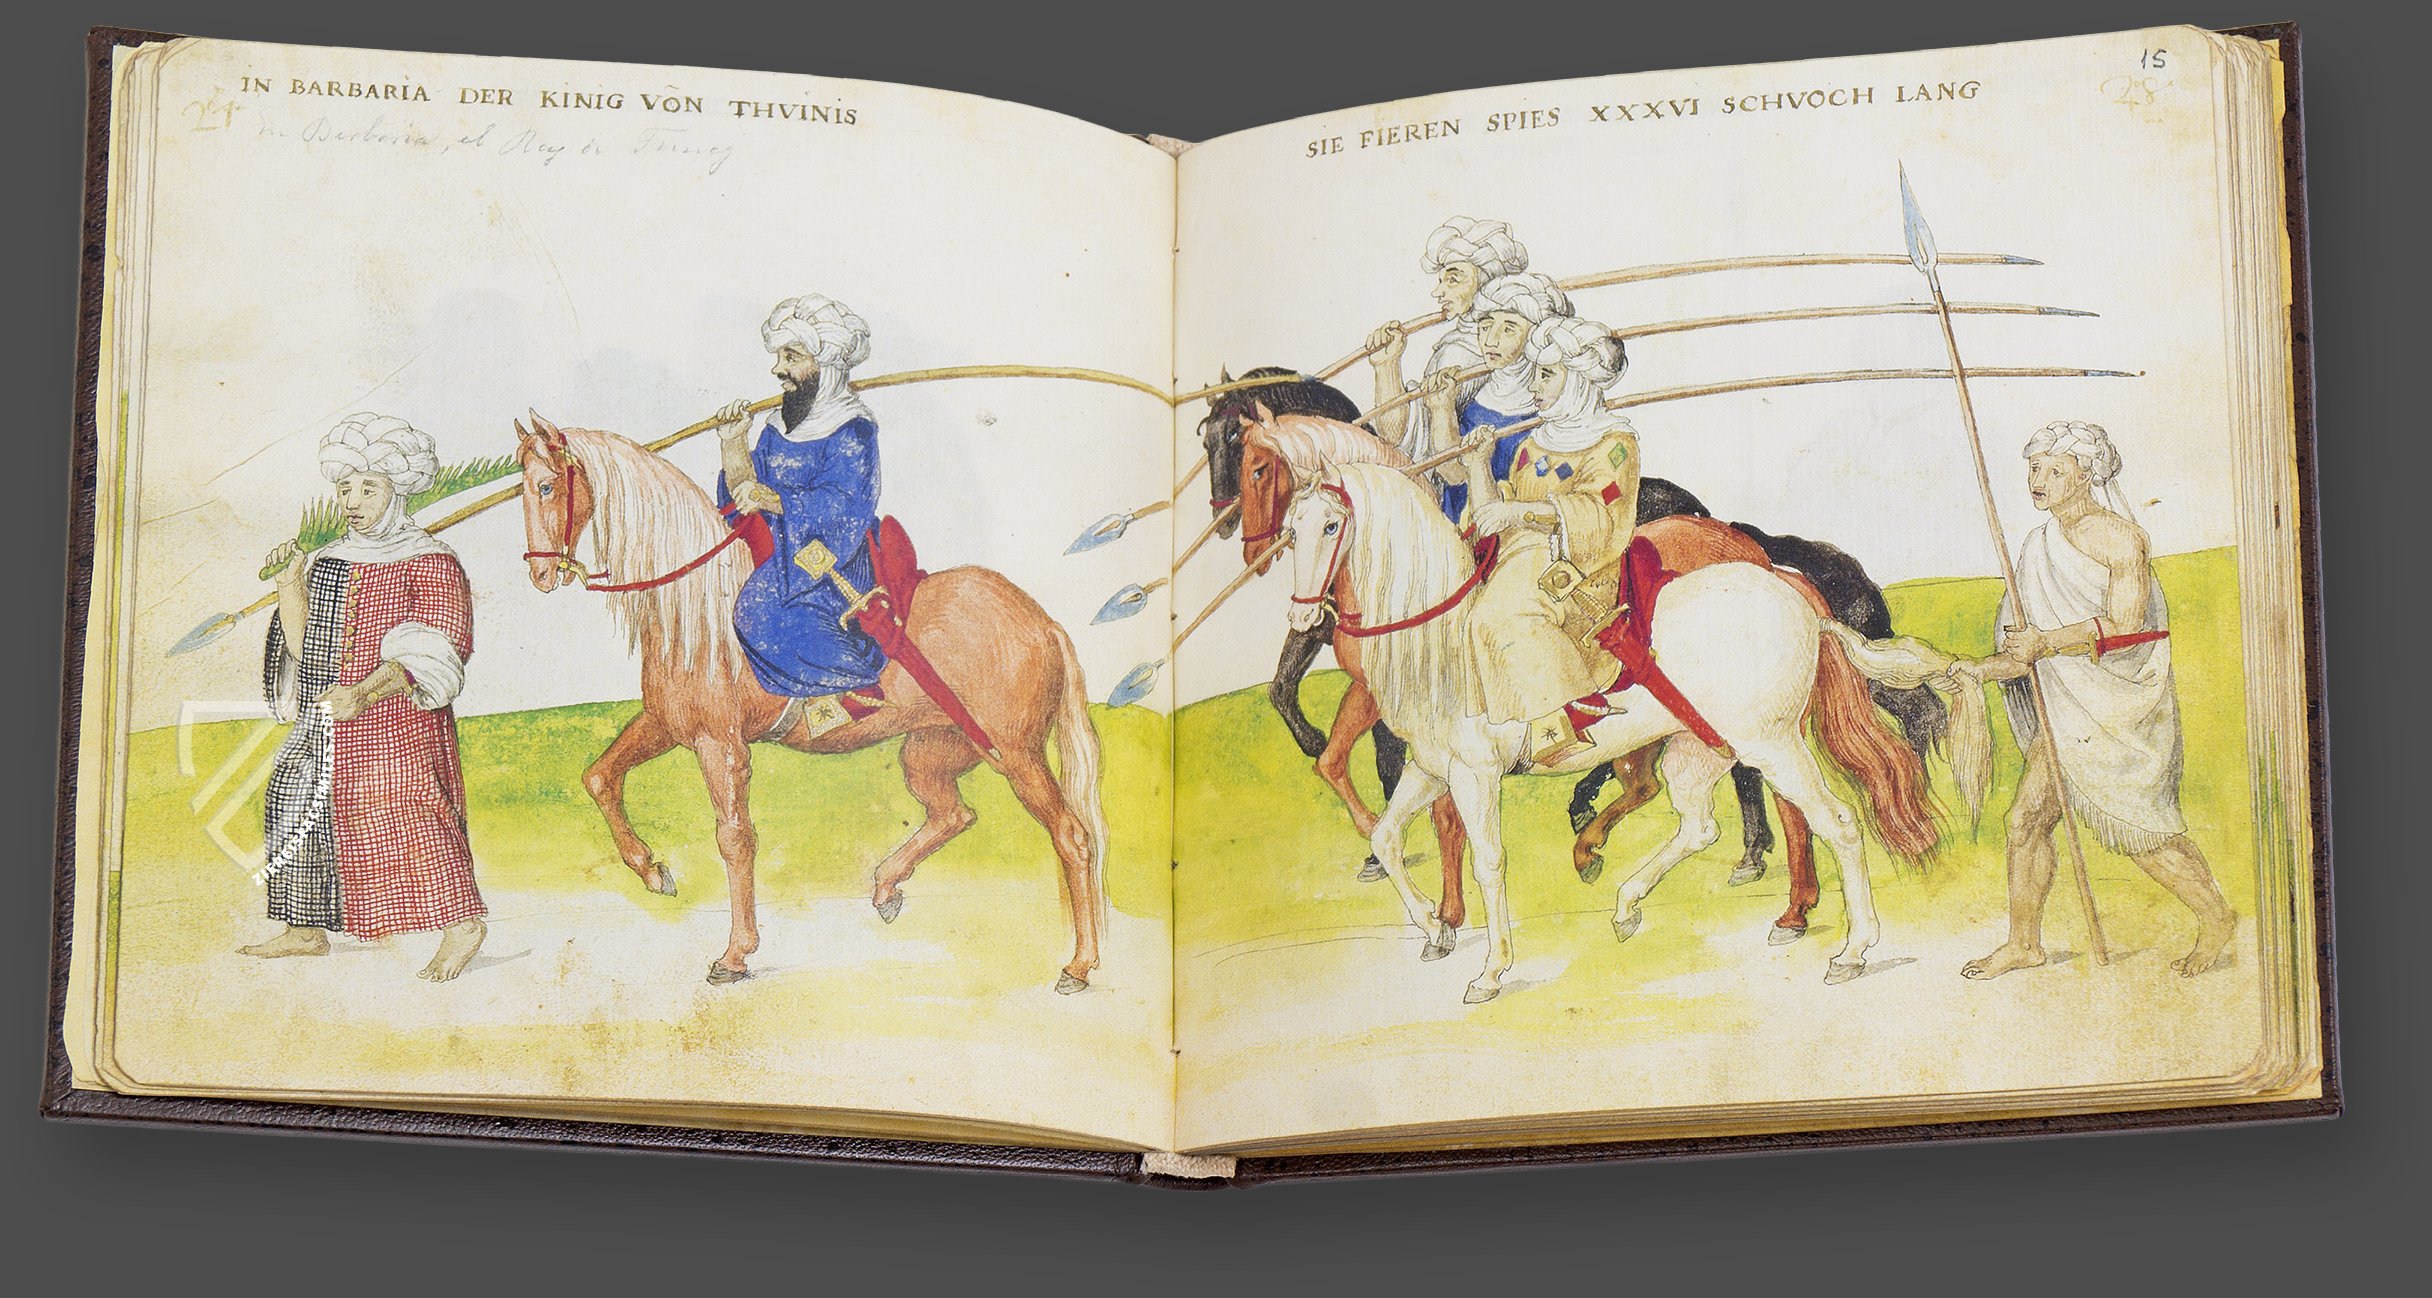 IN BARBARIA DER KINIG VŌN THVINIS
24
In Barbaria, el Rey de Tunez
SIE FIEREN SPIES XXXVI SCHVOCH LANG
15
28
ZIEREIS FACSIMILES.COM